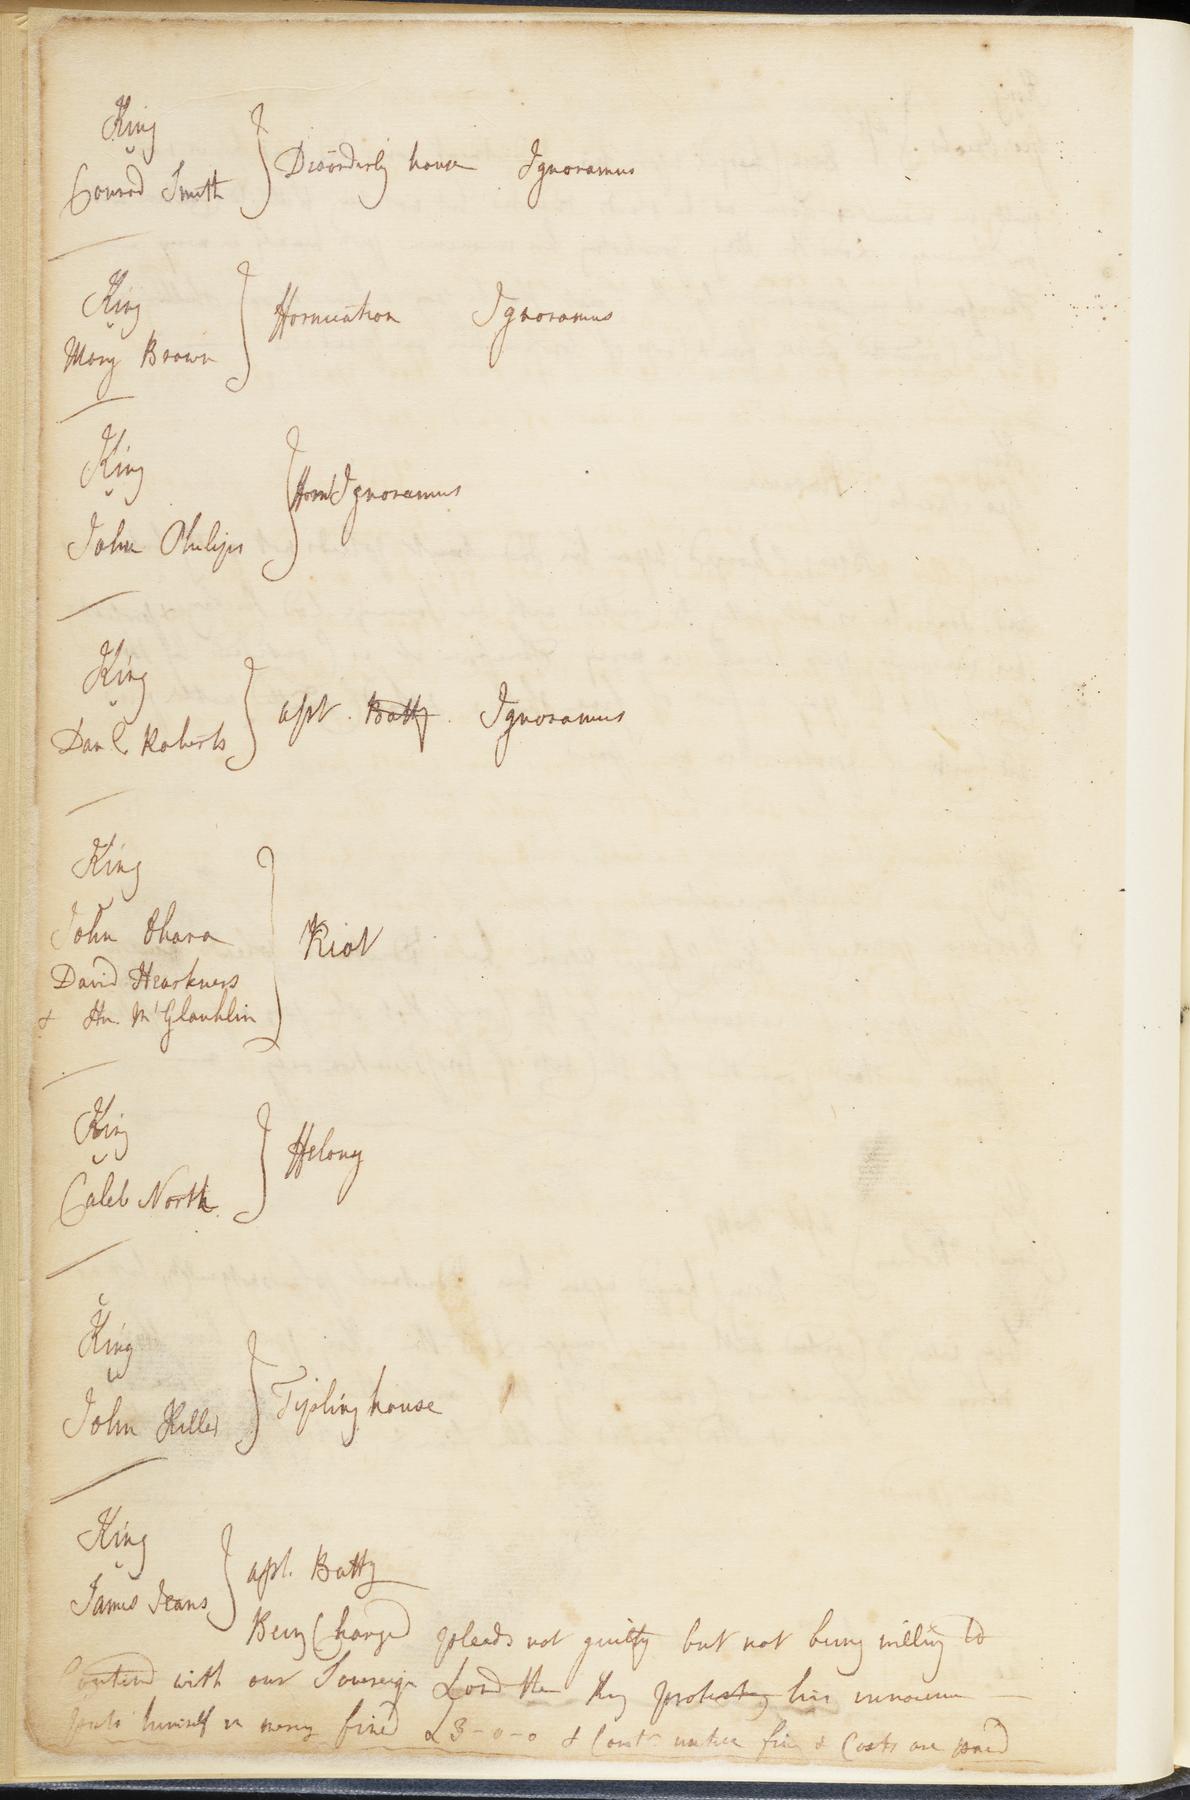 King
v
Conrad Smith } Disorderly house Ignoramus
King
v
Mary Brown } ffornication Ignoramus
King
v
John Philips } fforn Ignoramus
King
v
Danl. Roberts } asst. Batty. Ignoramus
King
v
John Ohara
David Hearkness
& Hu. McGlauhlin } Riot
King
v
Caleb North } ffelony
King
v
John Hiller } Tipling house
King
v
James Jeans } asst. Batty
Being Charged pleads not guilty but not being willing to
Contend with our Sovereign Lord the King protesting his innocence
puts himself in mercy fined £3-0-0 & Comt. until fine & Costs are paid